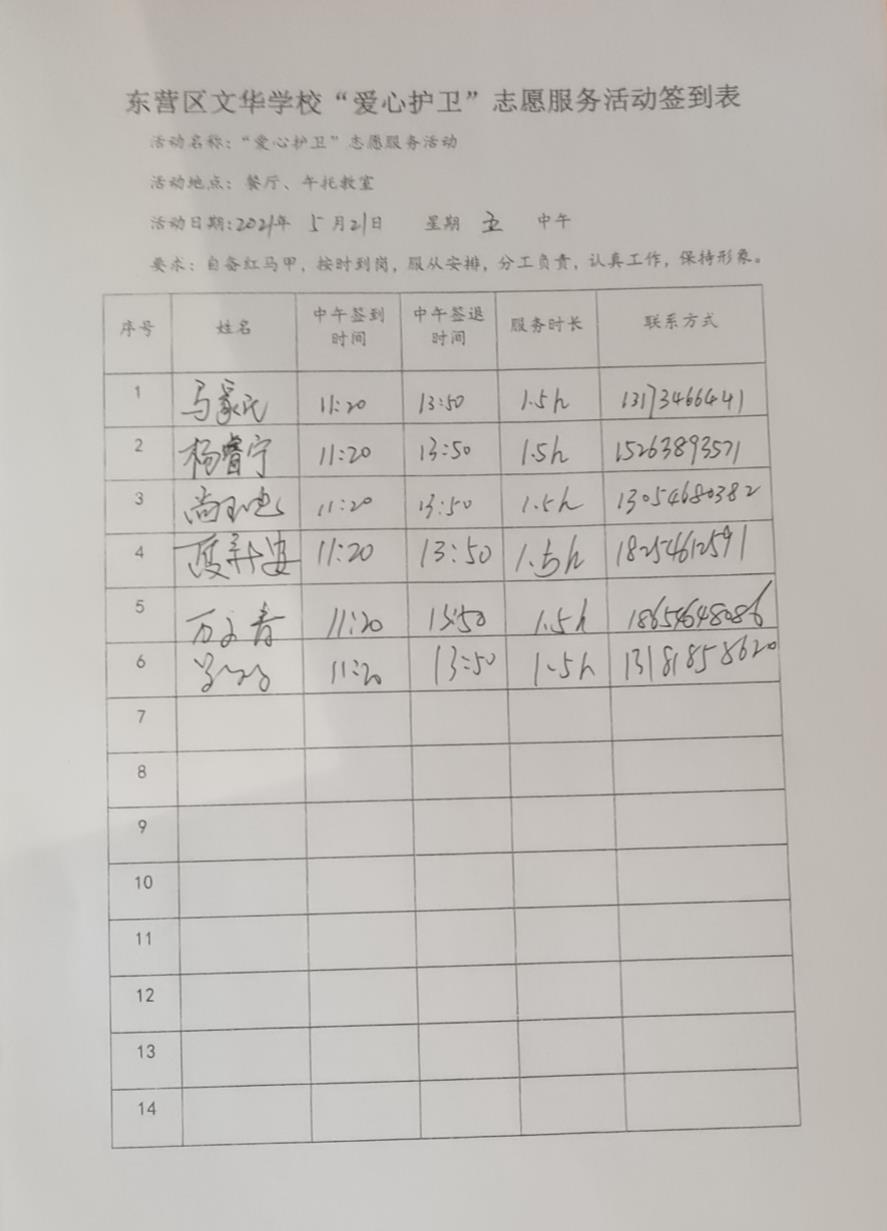 东营区文华学校“爱心护卫”志愿服务活动签到表
活动名称：“爱心护卫”志愿服务活动
活动地点：餐厅、午托教室
活动日期：2021年 5月21日 星期 五 中午
要求：自备红马甲，按时到岗，服从安排，分工负责，认真工作，保持形象。
序号 姓名 中午签到时间 中午签退时间 服务时长 联系方式
1 11:20 13:50 1.5h 13173466441
2 杨睿宁 11:20 13:50 1.5h 15263893571
3 11:20 13:50 1.5h 13054680382
4 11:20 13:50 1.5h 18254612591
5 万文青 11:20 13:50 1.5h 18654648086
6 11:20 13:50 1.5h 13181858620
7
8
9
10
11
12
13
14